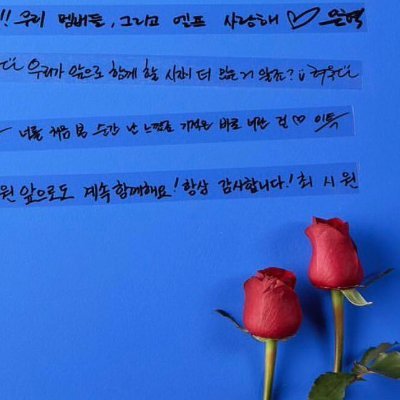 !! 우리 멤버들, 그리고 엘프 사랑해 ♡ 은혁
우리가 앞으로 함께 할 시간이 더 많은거 알죠? 려욱
너를 처음 본 순간 난 느꼈고 기적은 바로 너란 걸 ♡ 이특
원 앞으로도 계속 함께해요! 항상 감사합니다! 최 시 원